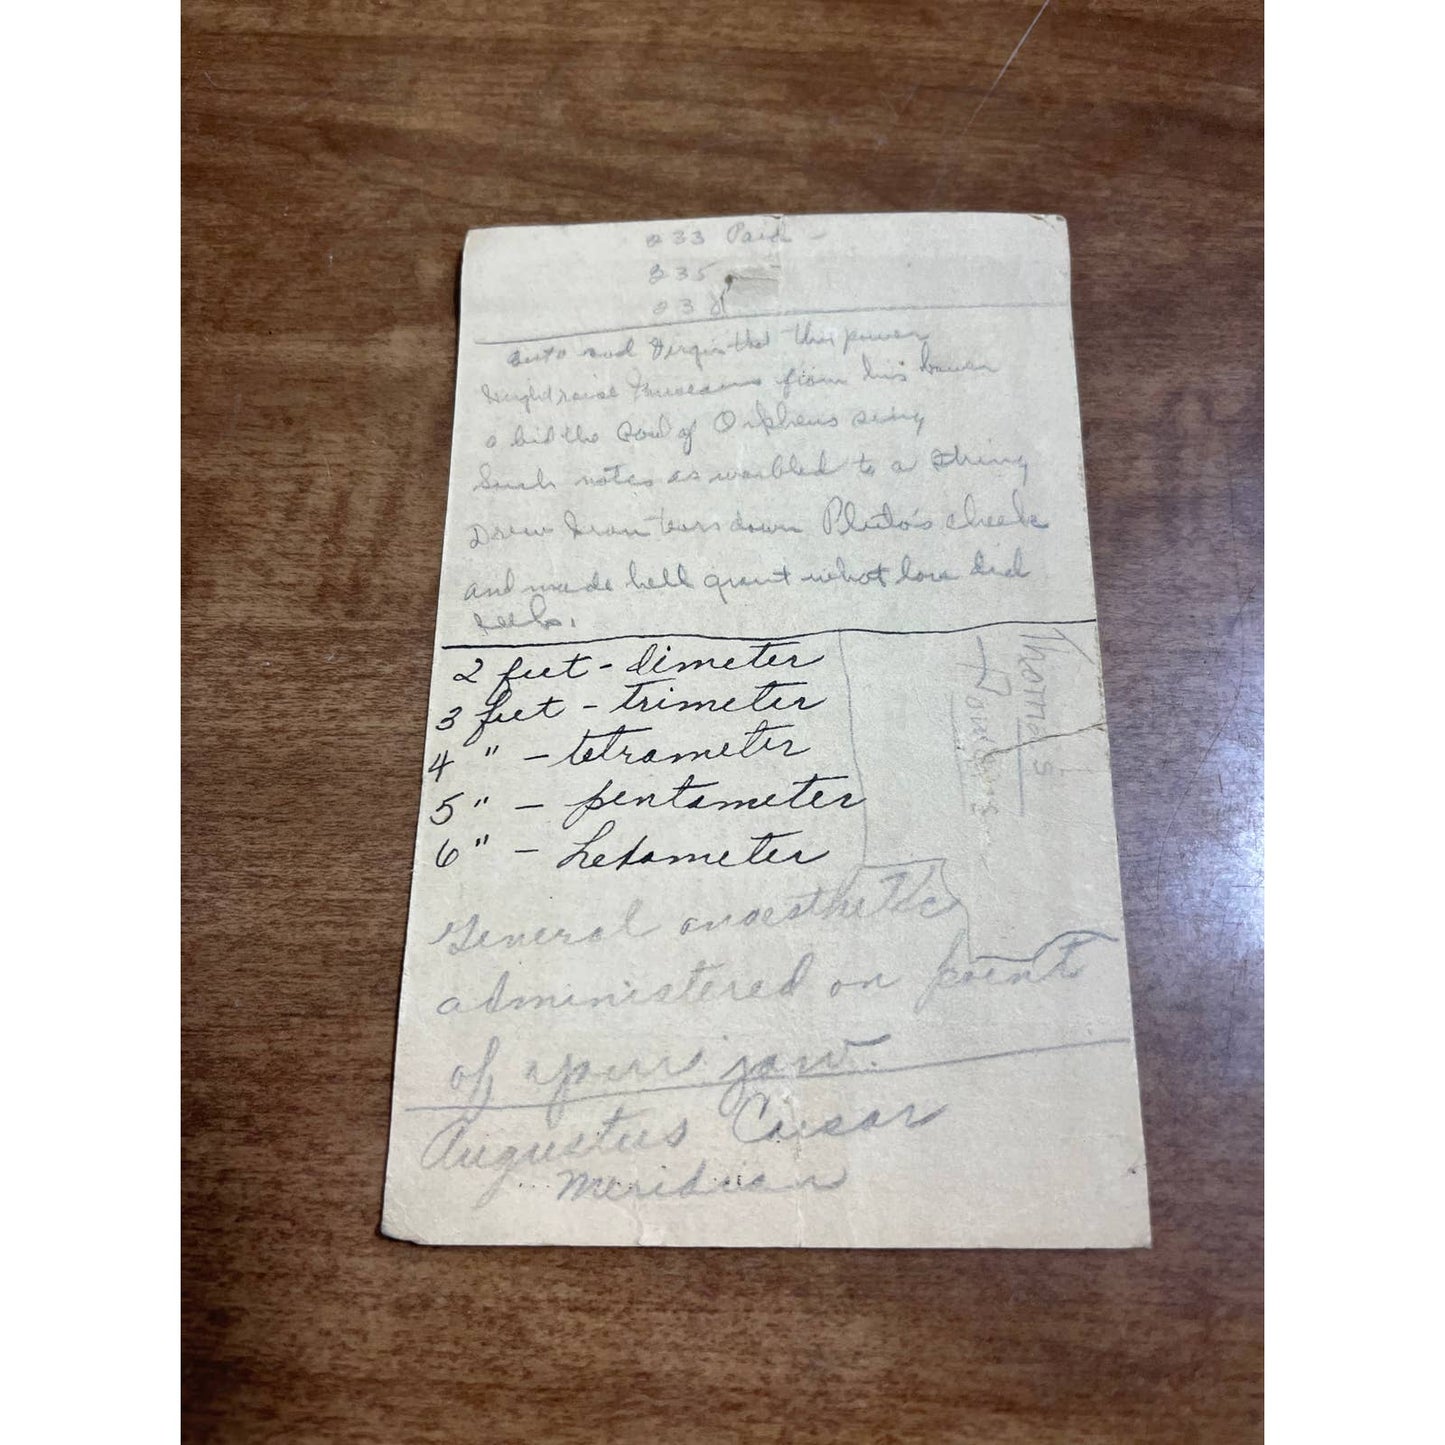 233 Paid -
235
23
and that thy power
Might raise Musaeus from his bower
o bid the soul of Orpheus sing
Such notes as warbled to a string
Drew Iron tears down Pluto's cheek
and made hell grant what love did
seek.
2 feet - dimeter
3 feet - trimeter
4 " - tetrameter
5 " - pentameter
6 " - hexameter
Thomas
General anaesthetic
administered on point
of your jaw.
Augustus Caesar
Meridian